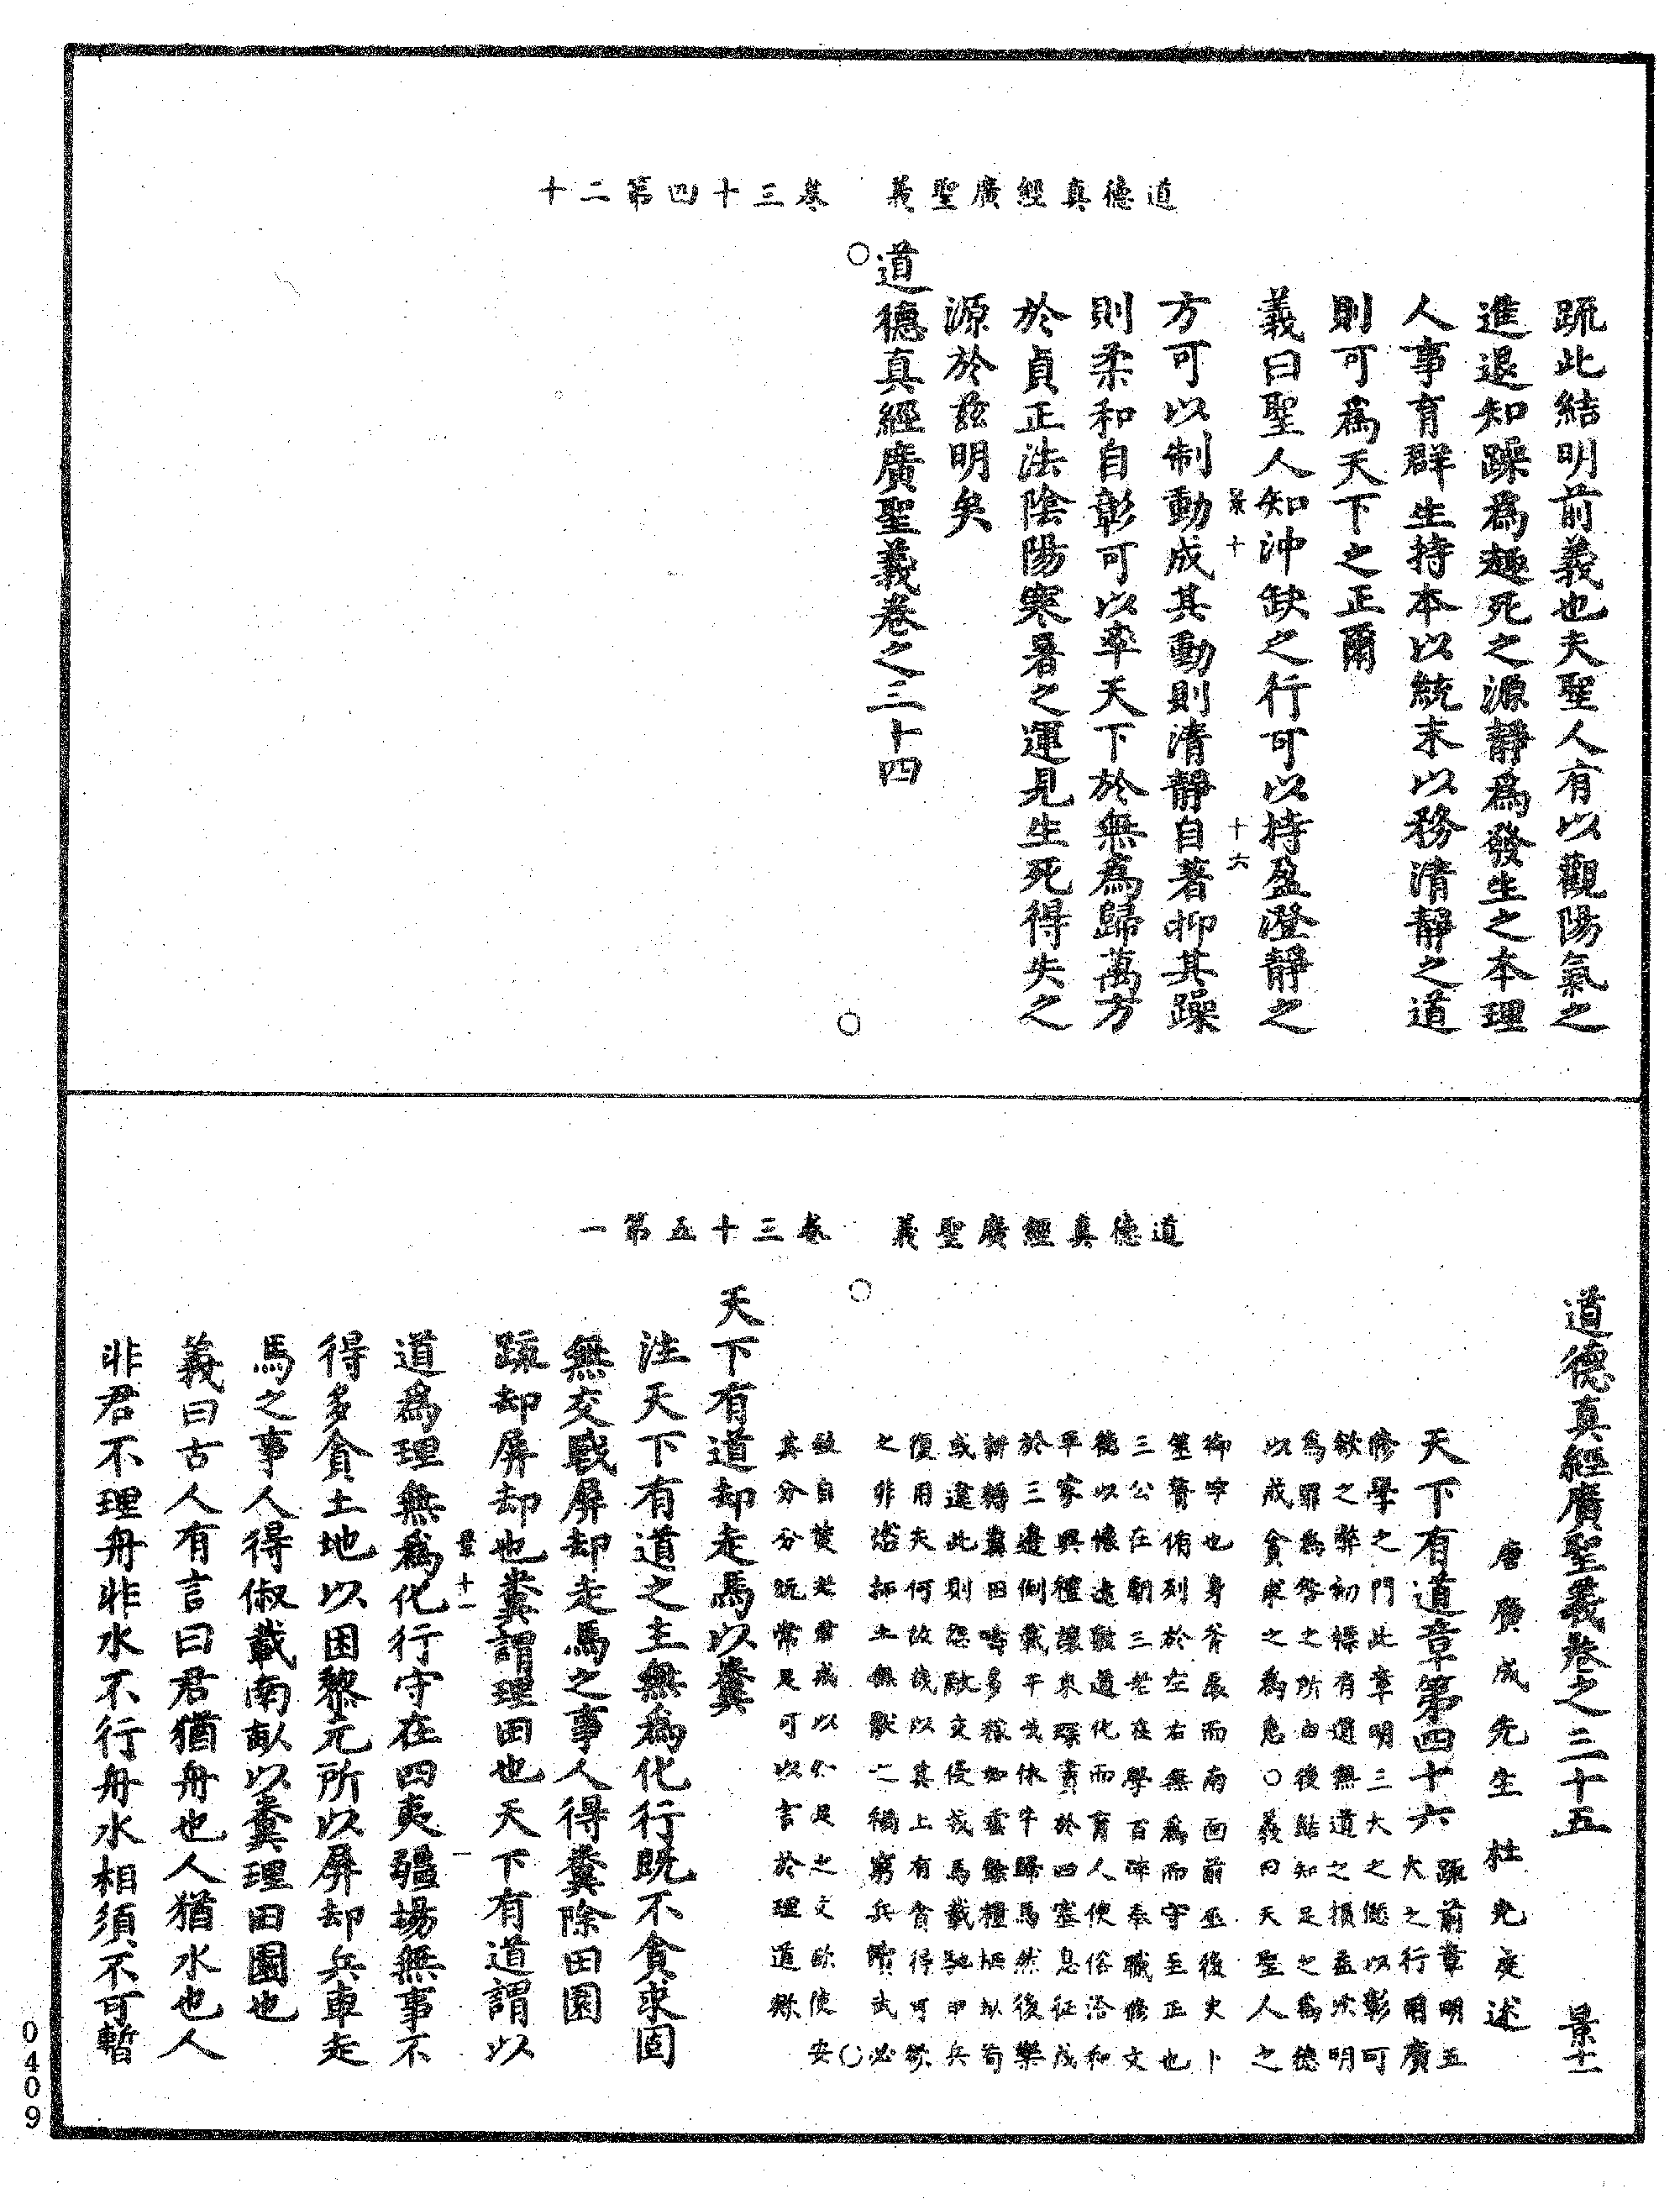 道德真經廣聖義　卷三十四第二十
疏此結明前義也夫聖人有以觀陽氣之
進退知躁為趣死之源靜為發生之本理
人事育群生持本以統末以務清靜之道
則可為天下之正爾
義曰聖人知沖缺之行可以持盈澄靜之
景十　十六
方可以制動成其動則清靜自著抑其躁
則柔和自彰可以率天下於無為歸萬方
於貞正法陰陽寒暑之運見生死得失之
源於茲明矣
道德真經廣聖義卷之三十四
道德真經廣聖義　卷三十五第一
道德真經廣聖義卷之三十五　景十一
唐廣成先生杜光庭述
天下有道章第四十六
疏前章明五
大之行爾廣
脩學之門此章明三大之愆以彰可
欲之弊初標有道無道之損益次明
為罪為咎之所由後結知足之為德
以戒貪求之為急○義曰天聖人之
御宇也身斧扆而南面前巫後史卜
筮瞽侑列於左右無為而守至正也
三公在朝三老在學百辟奉職脩文
德以懷遠敷道化而育人使俗洽和
平家興禮讓來琛賮於四塞息征戍
於三邊倒載干戈休牛歸馬然後樂
耕耨冀田疇多稼如雲餘糧栖畝苟
或違此則怨敵交侵戎馬載馳甲兵
復用夫何故哉以其上有貪得可欲
之非拓土無厭之禍窮兵黷武必
故自焚老君戒以知足之文欲使安
其分分既常足可以言於理道歟
天下有道却走馬以糞
注天下有道之主無為化行既不貪求固
無交戰屏却走馬之事人得糞除田園
疏却屏却也糞謂理田也天下有道謂以
景十一　一
道為理無為化行守在四夷疆場無事不
得多貪土地以困黎元所以屏却兵車走
馬之事人得俶載南畝以糞理田園也
義曰古人有言曰君猶舟也人猶水也人
非君不理舟非水不行舟水相須不可暫
0409